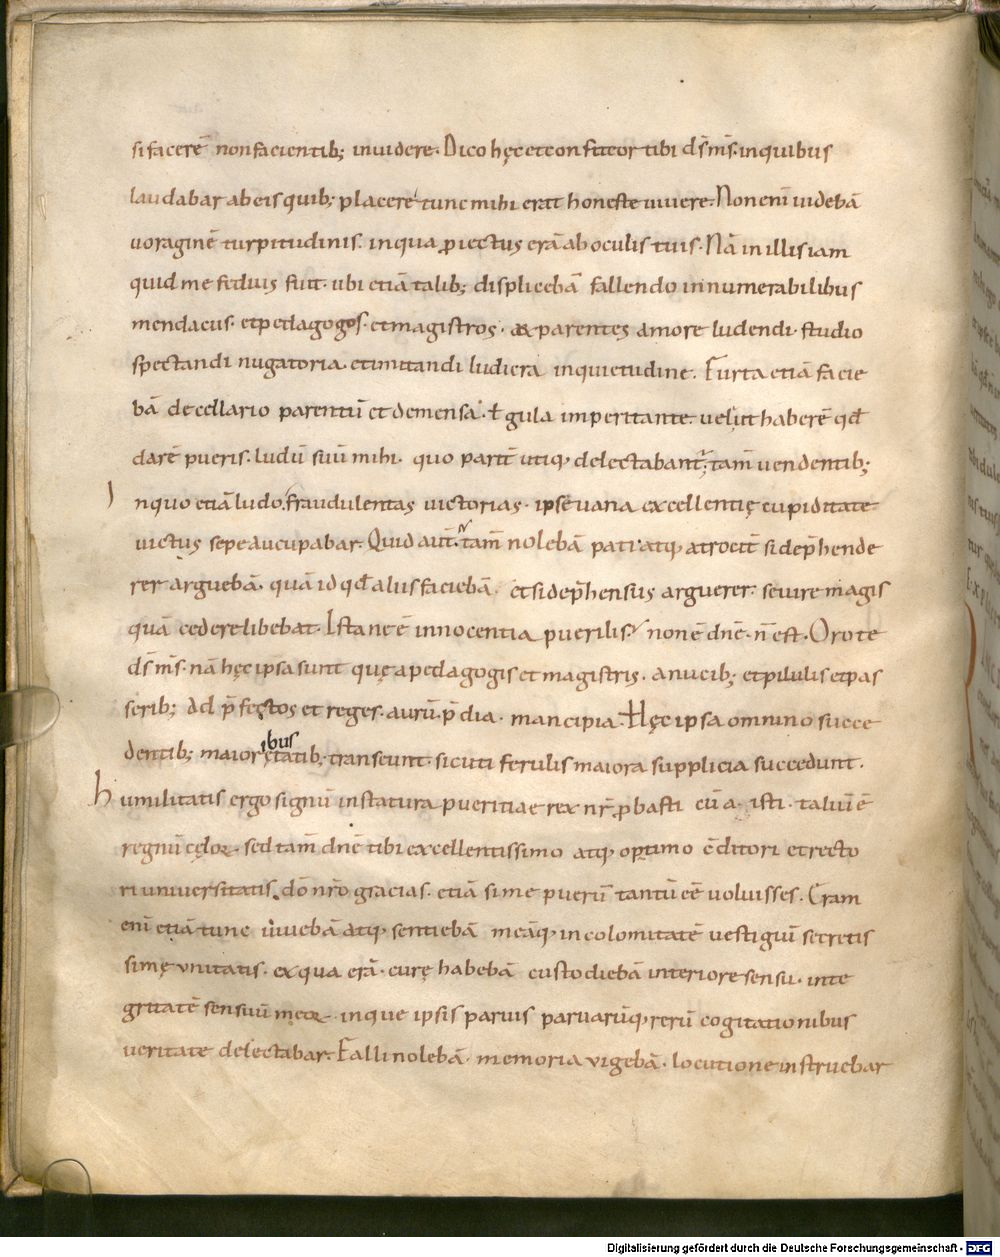 si facerē non facientib; inuidere. Dico hęc et confiteor tibi ds̄ ms̄. in quibus
laudabar ab eis quib; placere tunc mihi erat honeste uiuere. Non eni᷒ uidebā
uoraginē turpitudinis. in qua ꝓiectus erā ab oculis tuis. Nā in illis iam
quid me fedius fuit. ubi etiā talib; displicebā fallendo innumerabilibus
mendacus. et pedagogos. et magistros. & parentes amore ludendi. studio
spectandi nugatoria. et imitandi ludicra inquietudine. Furta etiā facie
bā de cellario parentū et de mensa. ł gula imperitante. uel ut haberē qd̄
darē pueris. ludū suū mihi. quo parit᷒ utiq; delectabant᷒; tam̄ uendentib;
Inquo etiā ludo. fraudulentas uictorias. ipse uana excellentię cupiditate
uictus sepe aucupabar. Quid aut̄. tam̄ nolebā pati atq; atrocit᷒ si dep̄hende
rer arguebā. quā id qd̄ aliis faciebā. et si dep̄hensus arguerer. seuire magis
quā cedere libebat. Ista ne ē innocentia puerilis. non ē dn̄e. n̄ est. Oro te
ds̄ ms̄. nā hęc ipsa sunt quę a pedagogis et magistris. a nucib; et pilulis et pas
serib; Ad p̄fectos et reges. aurū. p̄dia. mancipia. Hęc ipsa omnino succe
dentib; maioribus ętatib; transeunt. sicuti ferulis maiora supplicia succedunt.
humilitatis ergo signū in statura pueritiae rex nr̄ ꝓbasti cū a.isti. taliū ē
regnū cęloꝝ. sed tam̄ dn̄e tibi excellentissimo atq; optimo c̄ditori et recto
ri uniuersitatis. dō nr̄o gracias. etiā si me puerū tantū eē uoluisses. Eram
eni᷒ etiā tunc uiuebā atq; sentiebā meāq; incolomitatē uestigiū secretis
simę unitatis. ex qua erā. curę habebā custodiebā interiore sensu. inte
gritatē sensuū meoꝝ. inque ipsis paruis paruarūq; rerū cogitationibus
ueritate delectabar. Falli nolebā. memoria uigebā. locutione instruebar
Digitalisierung gefördert durch die Deutsche Forschungsgemeinschaft - DFG